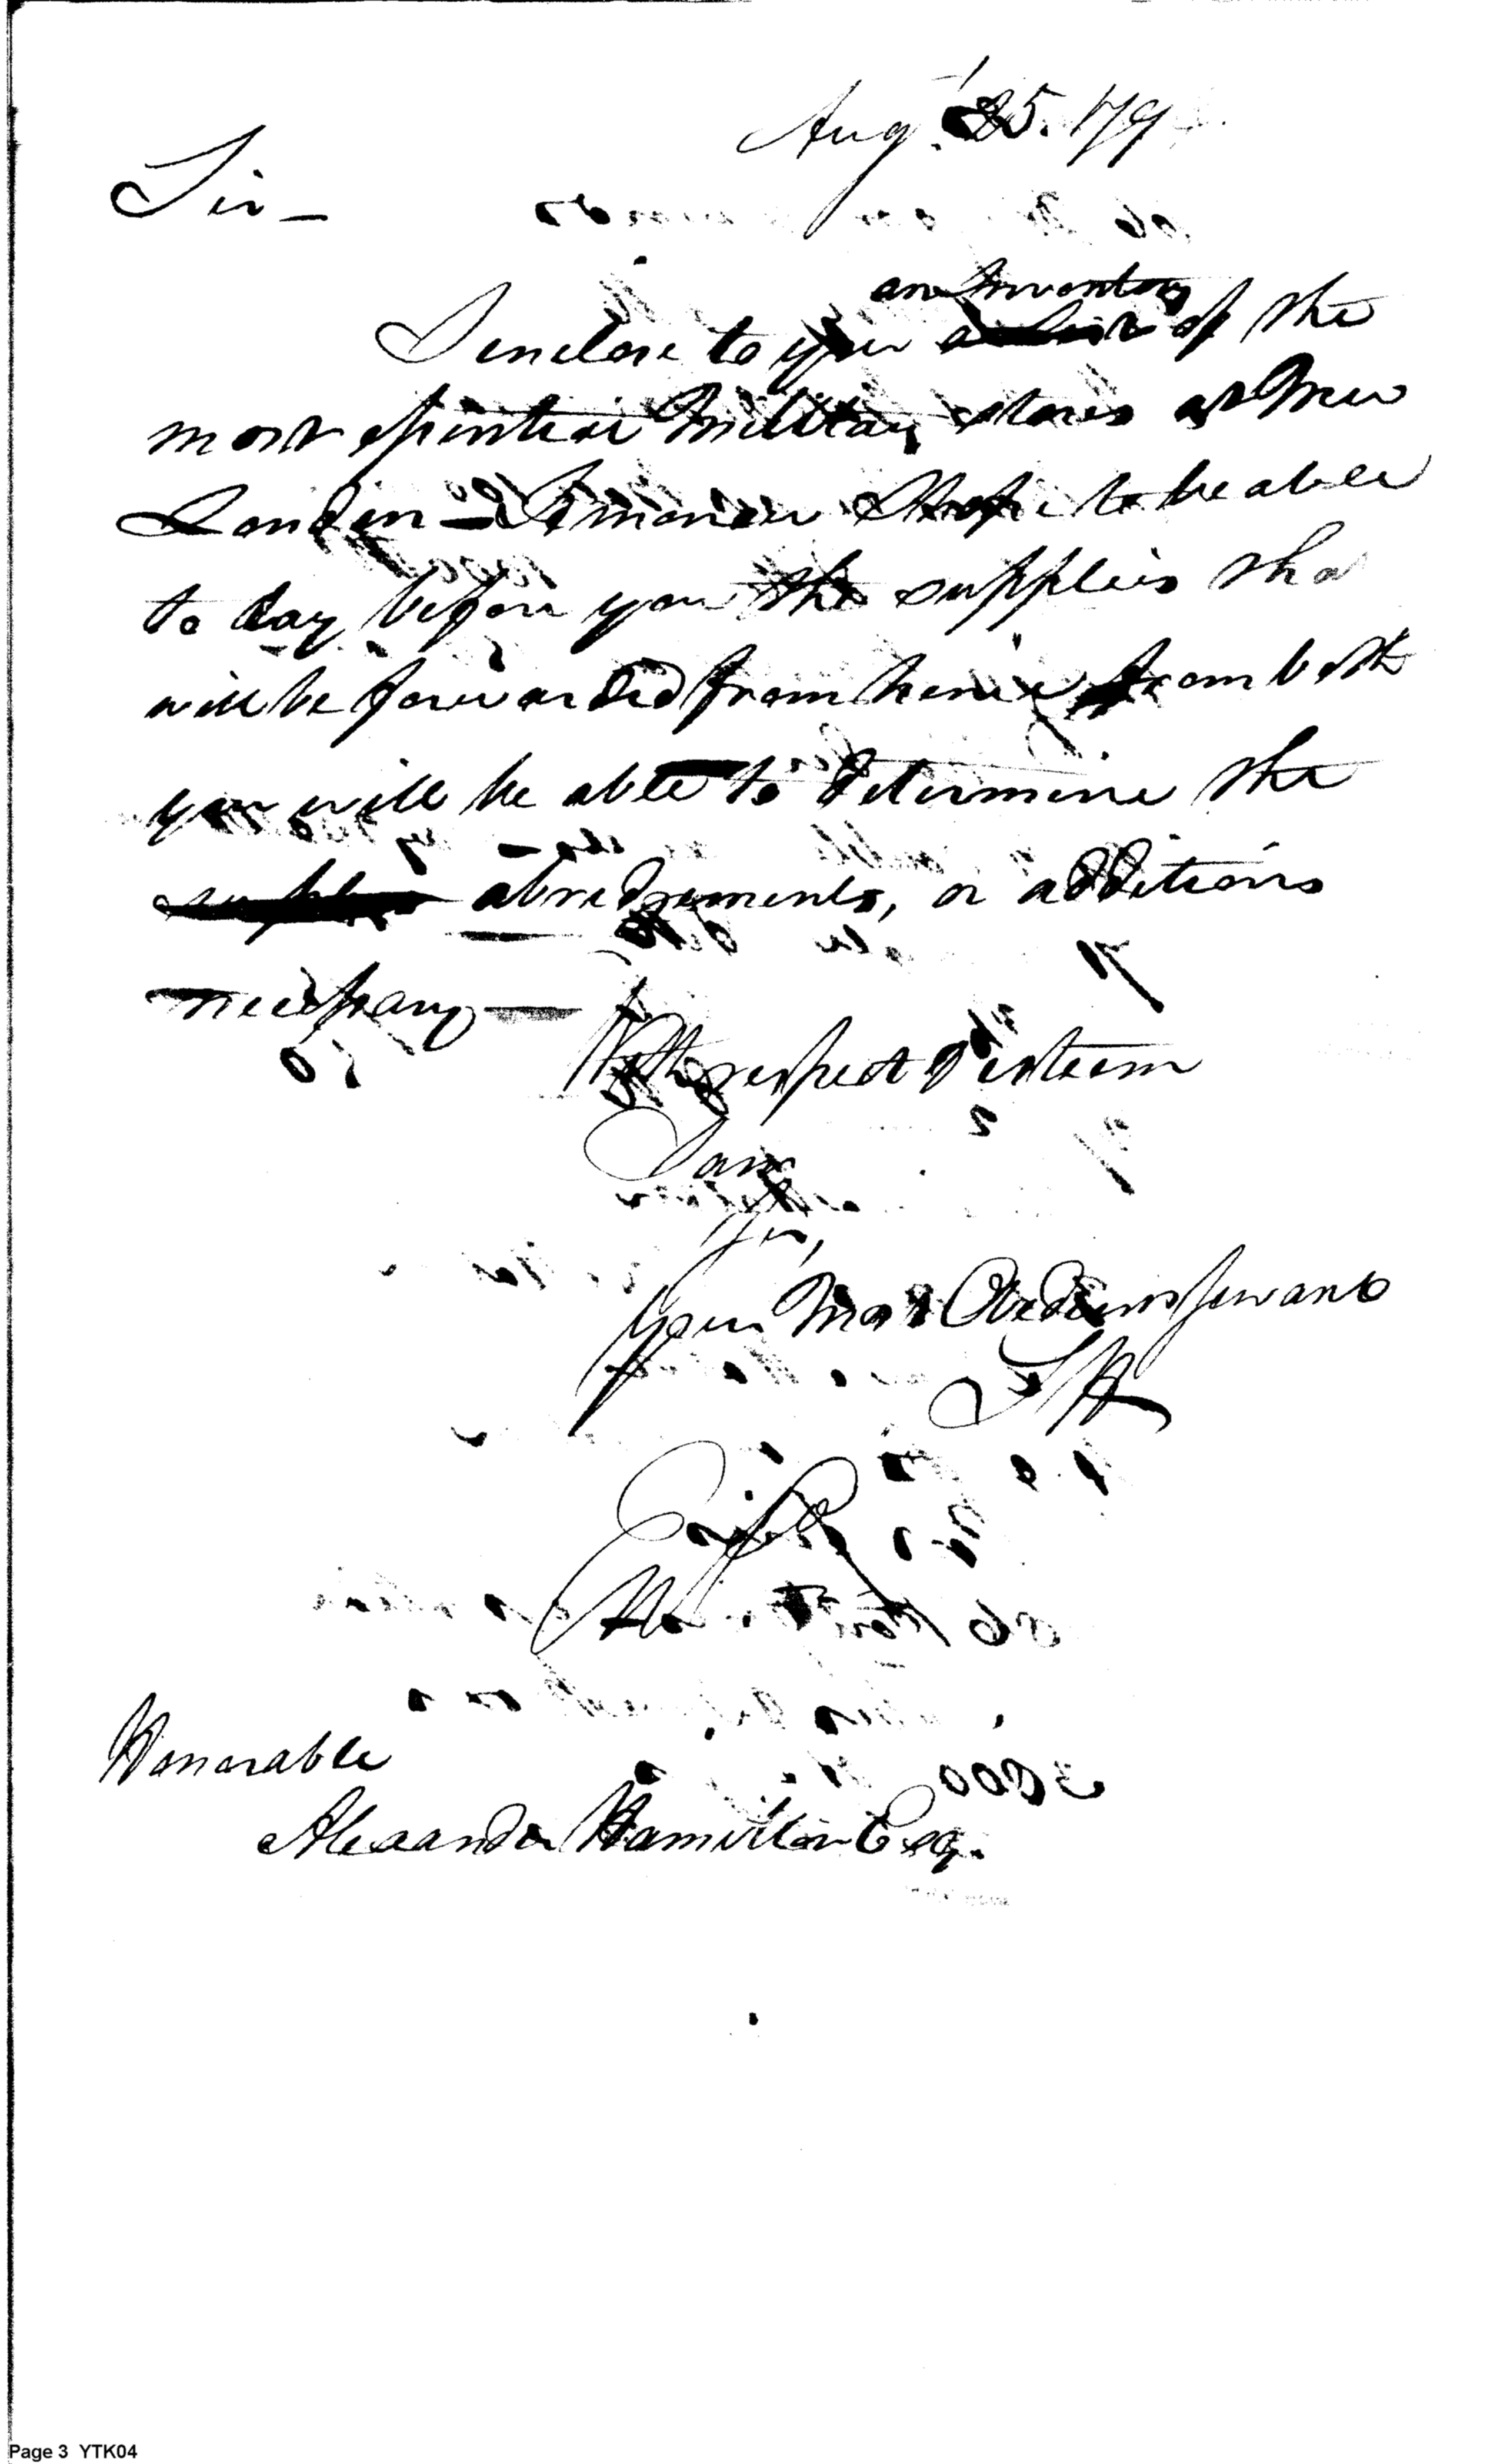 Augt. 25. 179
Sir —
an Inventory
I enclose to you a list of the
most essential Military stores at New
London — Tomorrow I hope to be able
to lay before you the supplies tha
will be forwarded from hence from both
you will be able to determine the
supplies abridgements, or additions
necessary —
With respect & esteem
I am
Sir,
Your Most Obedient Servant
Honorable
Alexander Hamilton Esq.
Page 3 YTK04